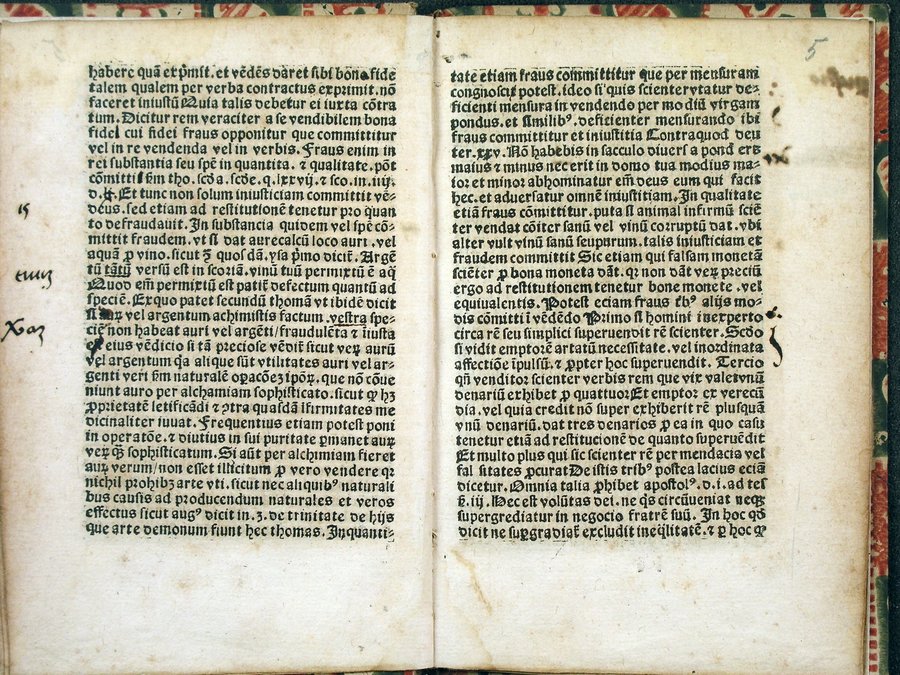 habere quā et ꝓmſit. et vēdēs daret ſibi bona fide
talem qualem per verba contractus exprimit. nō
faceret iniuſtū Quia talis debetur ei iuxta cōtra
tum. Dicitur rem veraciter a ſe vendibilem bona
fidel cui fidei fraus opponitur que committitur
vel in re vendenda vel in verbis. Fraus enim in
rei ſubſtantia ſeu ſpē in quantita. ⁊ qualitate. pōt
cōmitti ſm tho. ſcda. ſcde. q. lxxvij. ⁊ ſco. in. iiij.
Et tunc non ſolum iniuſticiam committit vē-
dēus. ſed etiam ad reſtitutionē tenetur pro quan
to defraudauit. In ſubſtantia quidem vel ſpē cō-
mittit fraudem. vt ſi dat aurecalcū loco auri. vel
aquā ꝓ vino. ſicut ꝫ quoſdā. yſa pͥmo dicit. Argē
tū tuū verſū eſt in ſcoriā. vinū tuū permixtū ē aq̄
Quod em̄ permixtū eſt patiť defectum quantū ad
ſpeciē. Exquo patet ſecundū thomā vt ibidē dicit
vel argentum achimiſtis factum. veſtra ſpe-
ciē non habeat auri vel argēti/fraudulēta ⁊ iniuſta
eius vēdicio ſi tā precioſe vēdiť ſicut verꝝ aurū
vel argentum q̄a alique ſūt vtilitates auri vel ar-
genti veri ſm̄ naturalē oꝑacōeꝫ ipōꝝ. que nō cōue
niunt auro per alchamiam ſophiſticato. ſicut ꝙ hꝫ
ꝓprietatē letificādi ⁊ ꝯtra quaſdā iſirmitates me
dicinaliter iuuat. Frequentius etiam poteſt poni
in operatōe. ⁊ diutius in ſui puritate ꝑmanet aurꝝ
verꝝ q̄ꝫ ſophiſticatum. Si aūt per alchimiam fieret
aurꝝ verum/non eſſet illicitum ꝓ vero vendere qꝛ
nichil prohibꝫ arte vti. ſicut nec aliquibꝰ naturali
bus cauſis ad producendum naturales et veros
effectus ſicut augꝰ dicit in. 3. de trinitate de hijs
que arte demonum fiunt hec thomas. In quanti-
is
5
tate etiam fraus committitur que per menſuram
congnoſci poteſt. ideo ſi quis ſcienter vtatur de-
ficienti menſura in vendendo per modiū virgam
pondus. et ſimilibꝰ. deficienter menſurando ibi
fraus committitur et iniuſtitia Contraquod deu
ter. xxv. Nō habebis in ſacculo diuerſa pond era
maius ⁊ minus nec erit in domo tua modius ma-
ior et minor abhominatur em̄ deus eum qui facit
hec. et aduerſatur omnē iniuſtitiam. In qualitate
etiā fraus cōmittitur. puta ſi animal infirmū ſciē
ter vendat cōiter ſanū vel vinū corruptū dat. vbi
alter vult vinū ſanū ſeu purum. talis iniuſticiam et
fraudem committit Sic etiam qui falſam monetā
ſciēter ꝓ bona moneta dāt. qꝛ non dāt verꝝ preciū
ergo ad reſtitutionem tenetur bone monete. vel
equiualentis. Poteſt eciam fraus tͥbꝰ alijs mo-
dis cōmitti ī vēdēdo Primo ſi homini inexperto
circa rē ſeu ſimplici ſuperuendit rē ſcienter. Scdo
ſi vidit emptorē artatū neceſſitate. vel inordinata
affectiōe īpulſū. ⁊ ꝓpter hoc ſuperuendit. Tercio
qn̄ venditor ſcienter verbis rem que vix valet vnū
denariū exhibet ꝓ quattuor Et emptor ex verecū
dia. vel quia credit nō ſuper exhiberit rē pluſquā
vnū denariū. dat tres denarios ꝓ ea in quo caſu
tenetur etiā ad reſtitucionē de quanto ſuperuēdit
Et multo plus qui ſic ſcienter rē per mendacia vel
fal ſitates ꝓcurat De iſtis tribꝰ poſtea lacius eciā
dicetur. Omnia talia ꝓhibet apoſtolꝰ. ꝓ. i. ad teſ
ẜ. iij. Nec eſt volūtas dei. ne q̄s circūueniat neqꝫ
ſupergrediatur in negocio fratrē ſuū. In hoc qꝺ
dicit ne ſuꝑgradiať excludit ineq̄litatē. ⁊ ꝑ hoc ꝙ